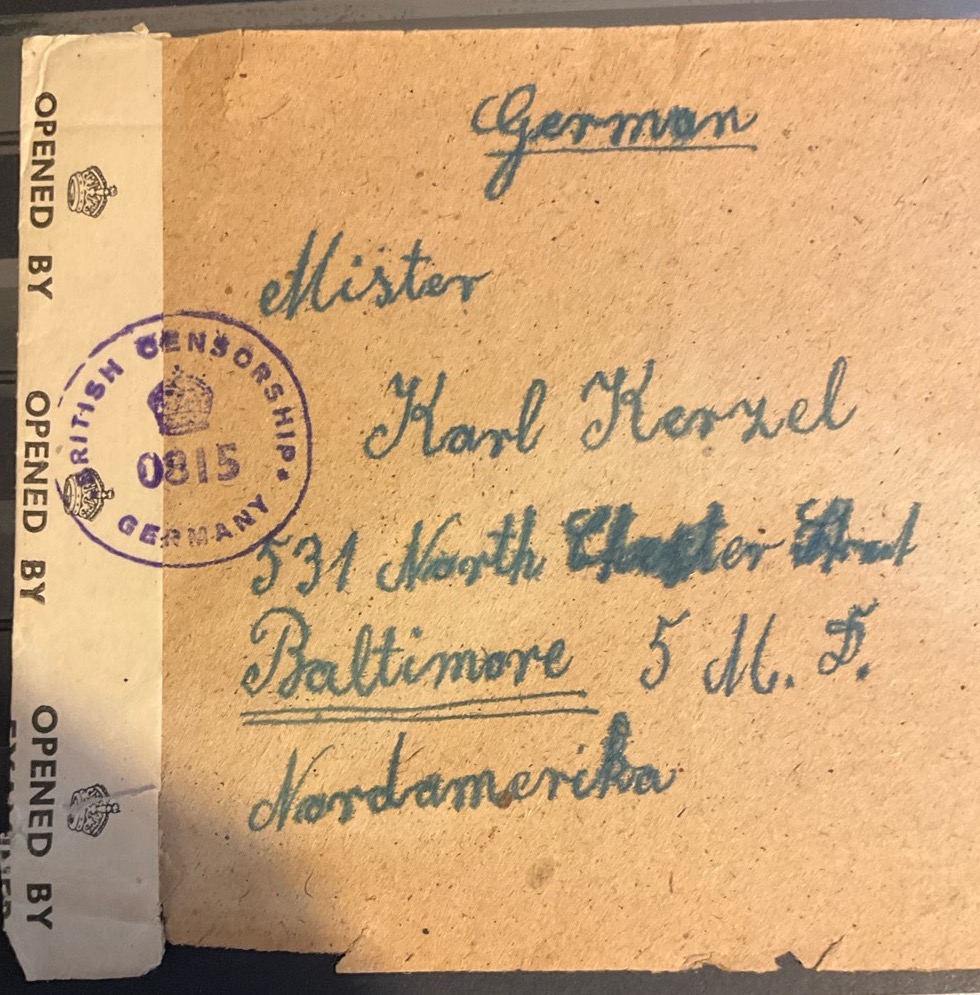 German
Mister
Karl Kerzel
531 North Chester
Baltimore 5 M. D.
Nordamerika
BRITISH CENSORSHIP
0815
GERMANY
OPENED BY
OPENED BY
OPENED BY